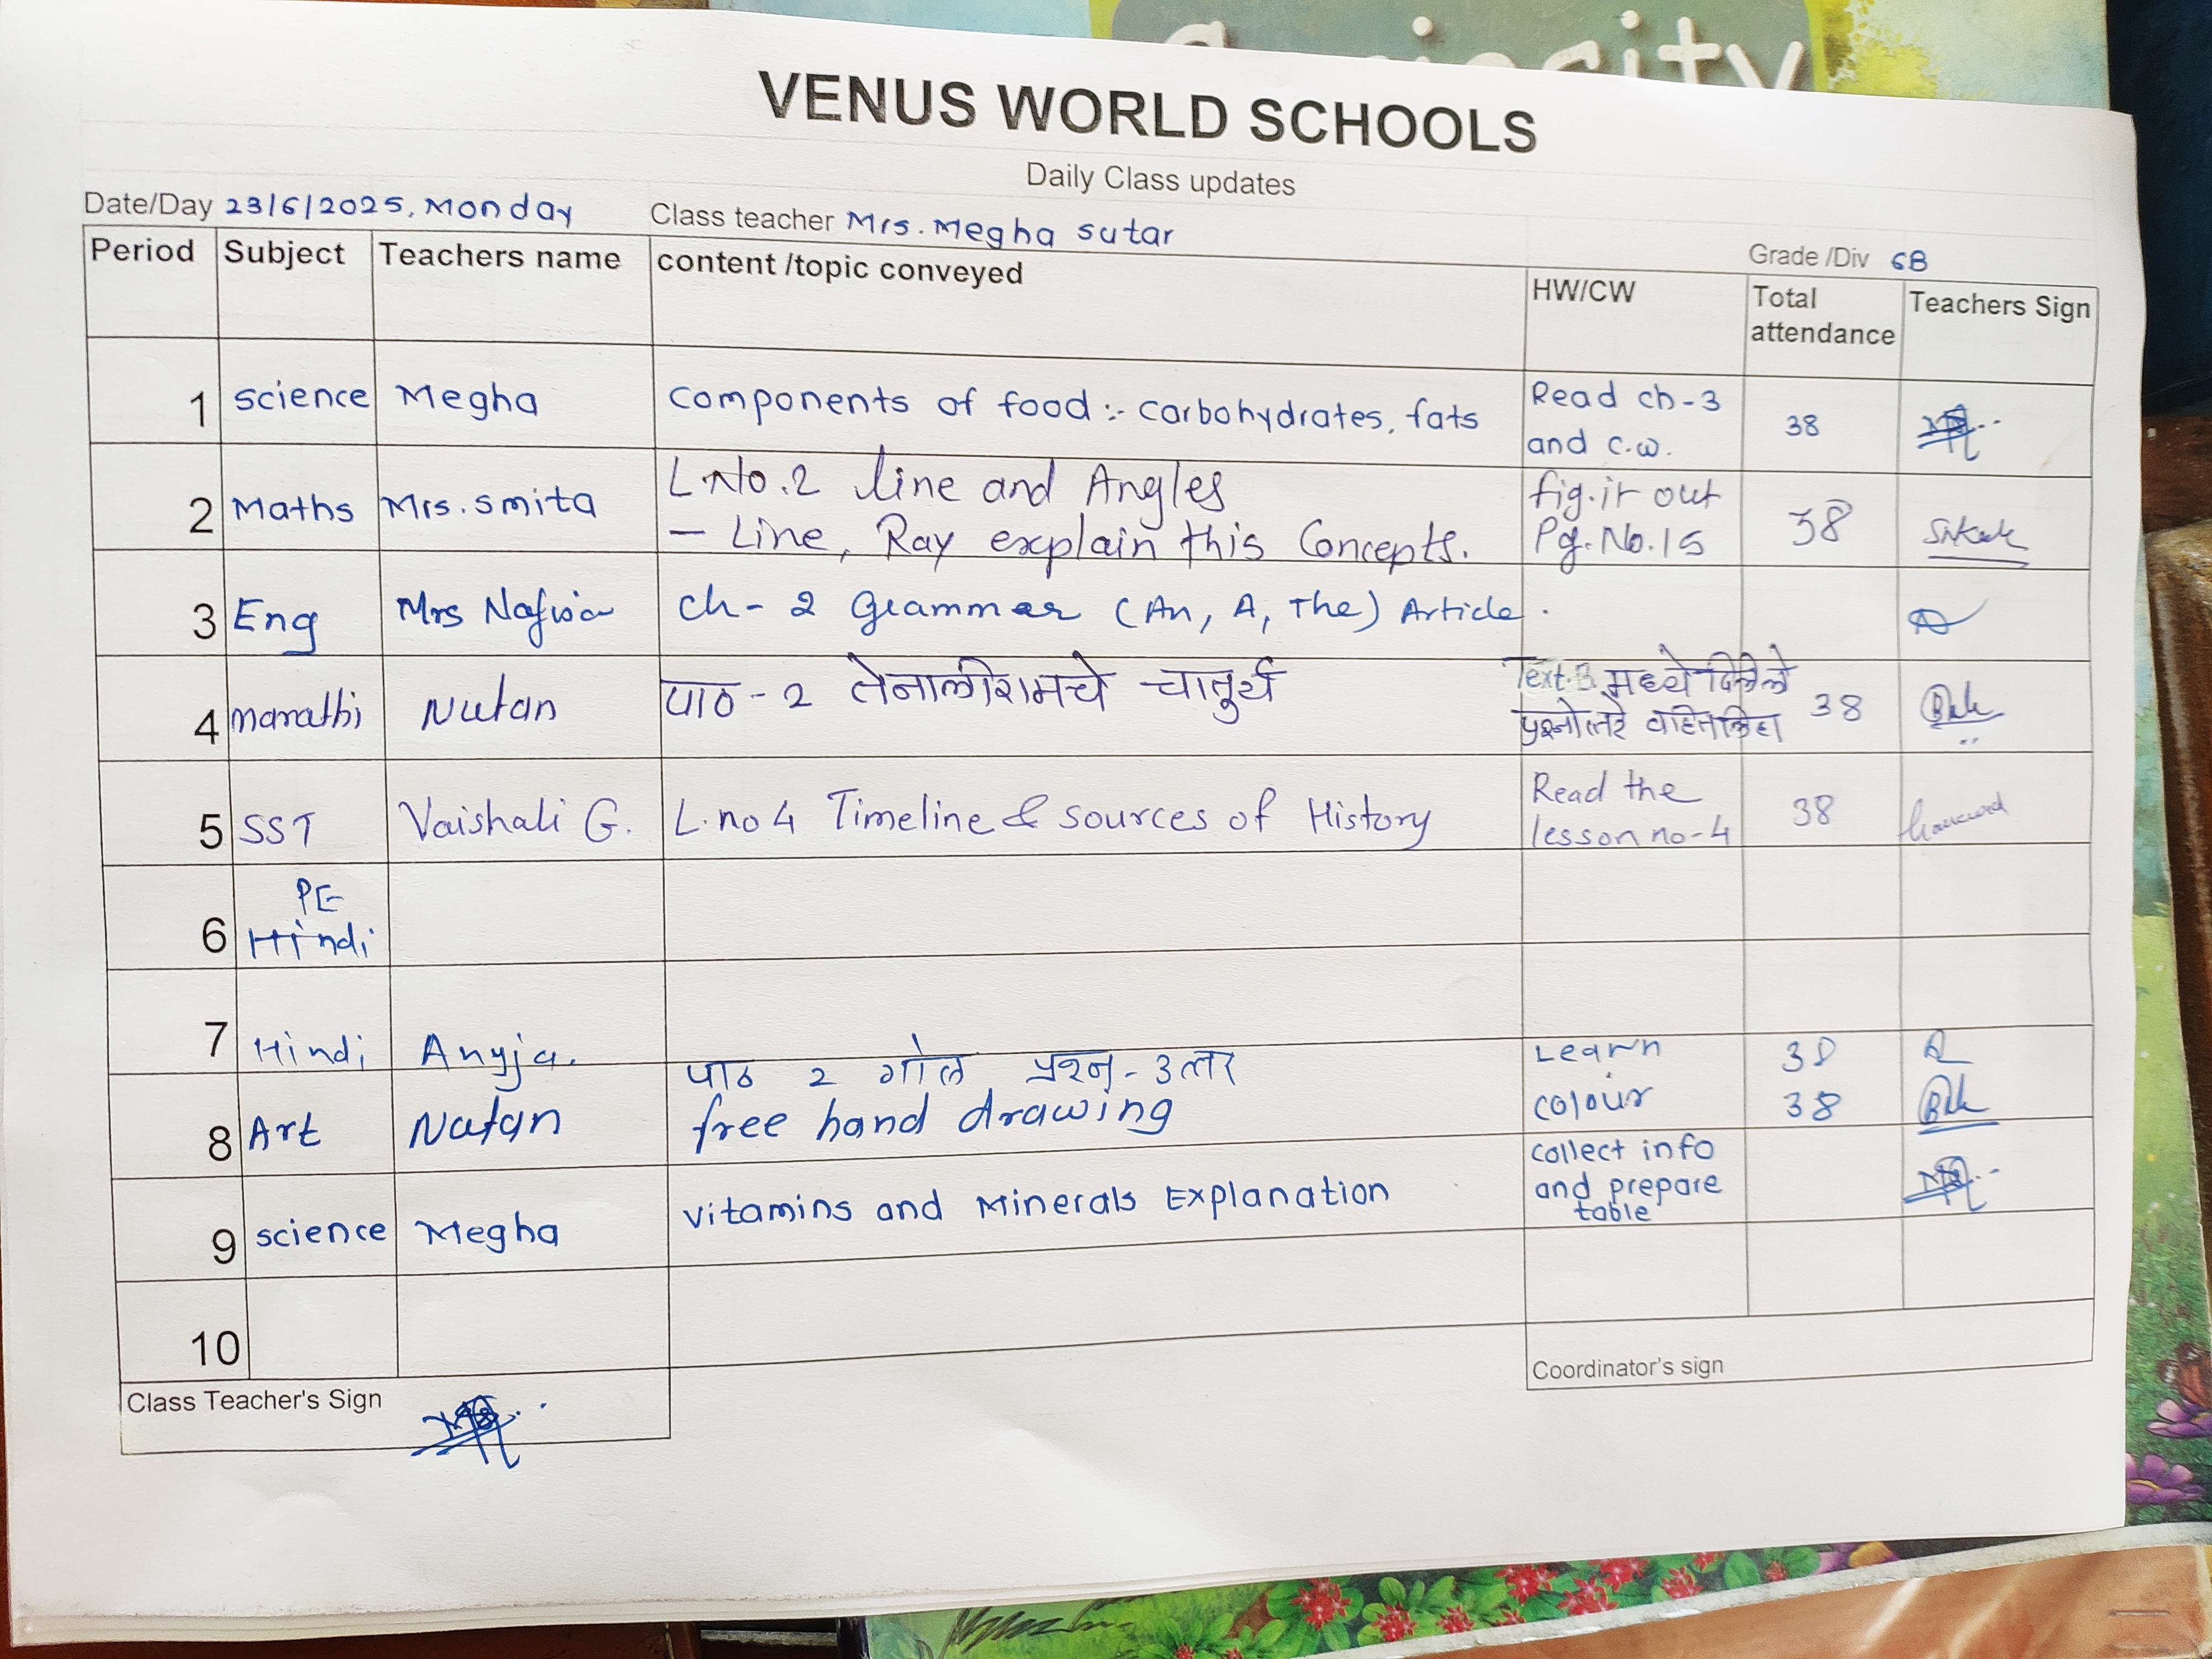 Curiosity
VENUS WORLD SCHOOLS
Daily Class updates
Date/Day 23/6/2025, Monday Class teacher Mrs. Megha Sutar Grade /Div 6B
Period Subject Teachers name content /topic conveyed HW/CW Total attendance Teachers Sign
1 Science Megha Components of food :- Carbohydrates, fats Read ch-3 and c.w. 38
2 Maths Mrs. Smita L.No.2 line and Angles fig.it out 38
– Line, Ray explain this Concepts. Pg.No.15
3 Eng Mrs ch- 2 Grammar (An, A, The) Article.
4 Marathi Nutan पाठ - 2 तेनालीरामचे चातुर्य Text.B मध्ये दिलेले 38
प्रश्नोत्तरे वहीत लिहा
5 SST Vaishali G. L.no 4 Timeline & sources of History Read the lesson no-4 38
6 PE
Hindi
7 Hindi पाठ 2 गोल प्रश्न-उत्तर Learn 38
8 Art Nutan free hand drawing colour 38
9 science Megha vitamins and Minerals Explanation collect info and prepare table
10
Class Teacher's Sign Coordinator's sign